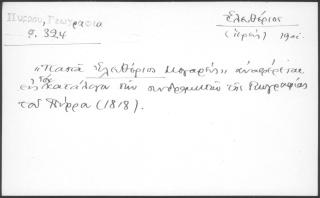 Πύρρου, Γεωγραφία
σ. 324
Ἐλευθέριος
(ἱερεὺς)
"Παπᾶ Ἐλευθέριος Μεγαρεὺς" ἀναφέρεται
εἰς τὸν κατάλογο τῶν συνδρομητῶν τῆς Γεωγραφίας
τοῦ Πύρρου (1818).